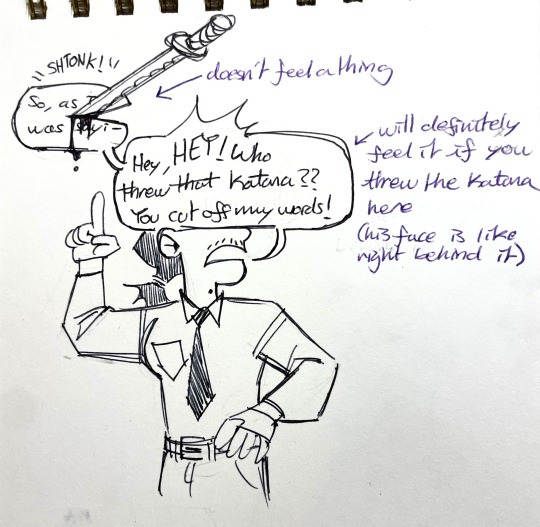 SHTONK!
doesn't feel a thing
So, as I
was sayi-
Hey, HEY! Who
threw that Katana??
You cut off my words!
will definitely
feel it if you
threw the Katana
here
(his face is like
right behind it)